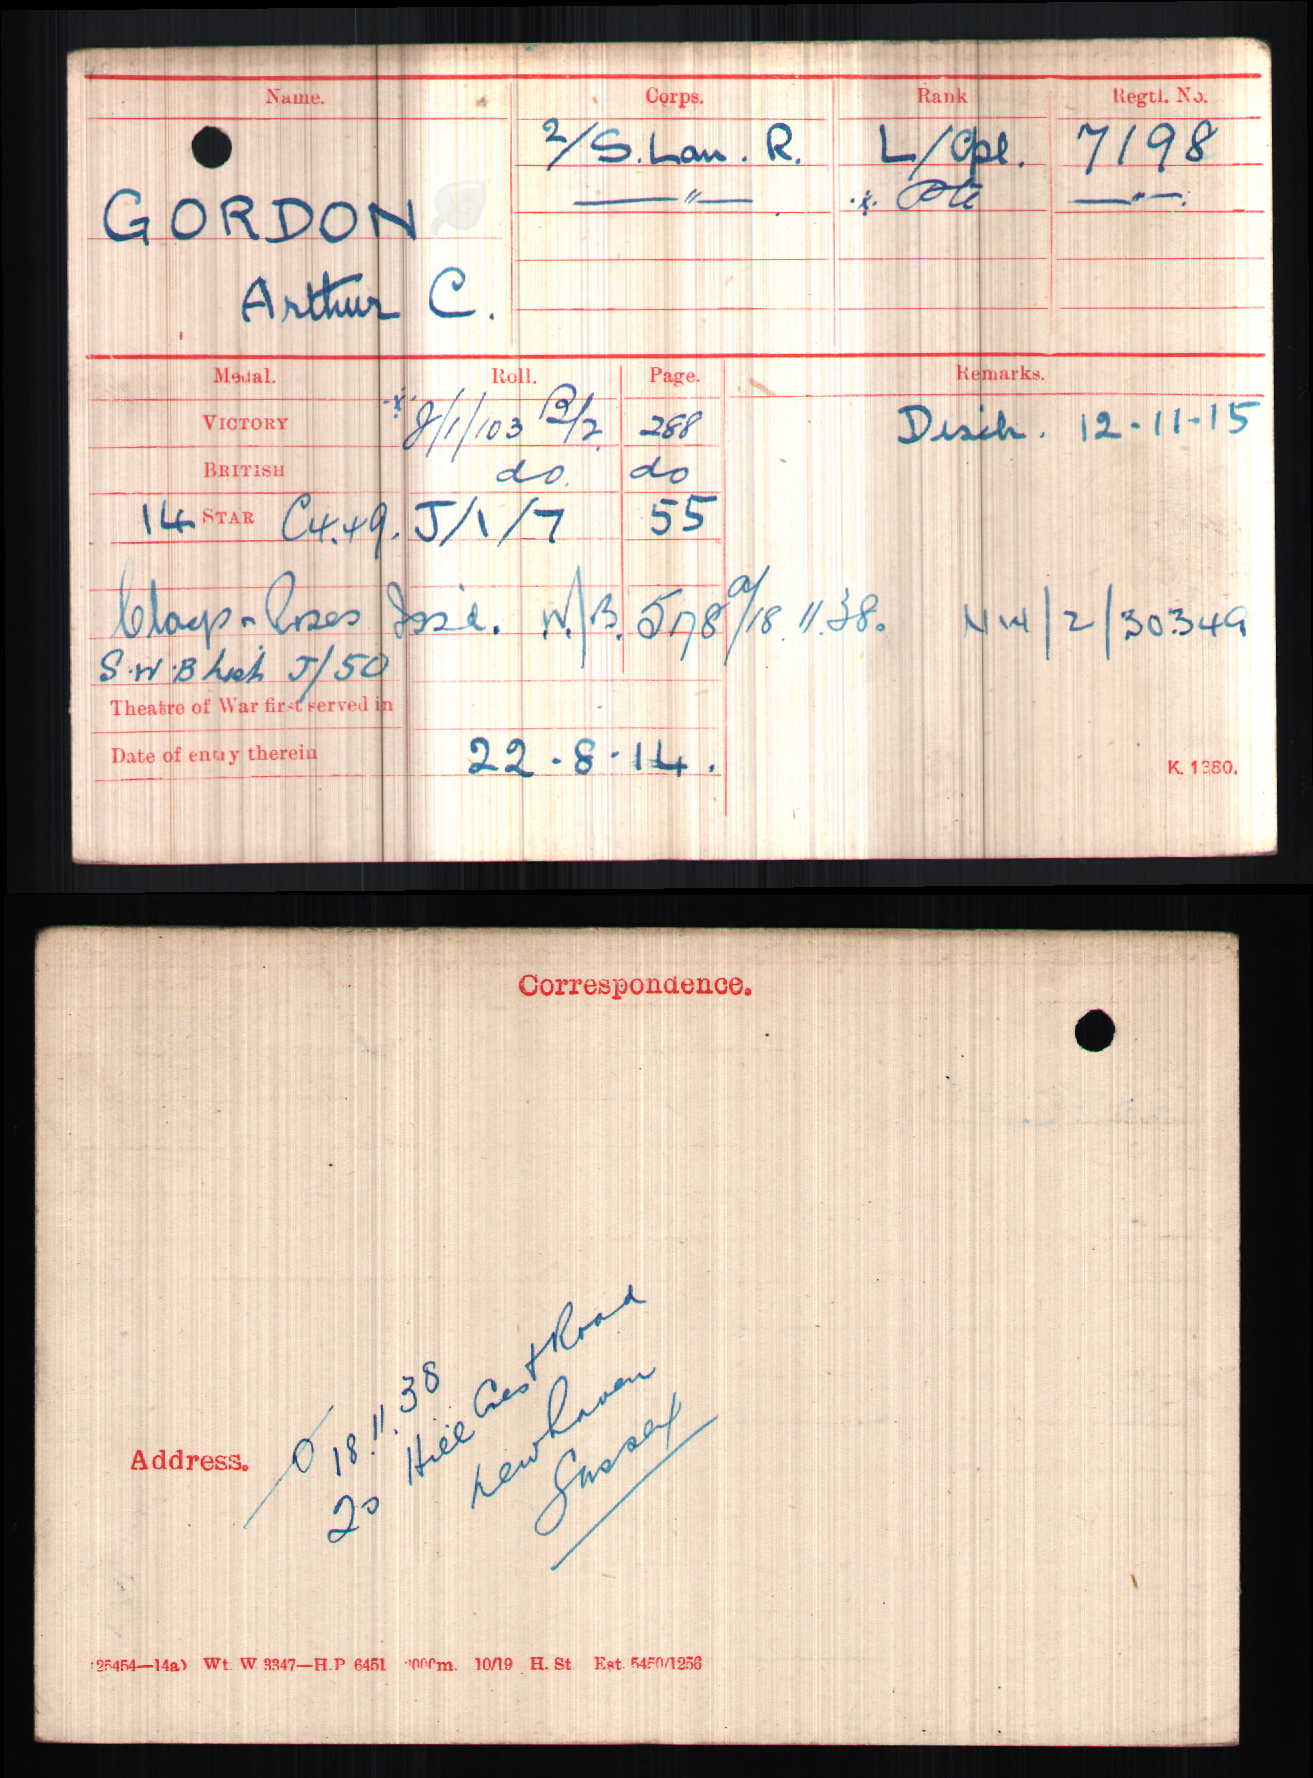 Name. Corps. Rank Regtl. No.
2/S. Lan. R. L/Cpl. 7198
—"— * Pte —"—.
GORDON
Arthur C.
Medal. Roll. Page. Remarks.
VICTORY * J/1/103 B/2 288 Disch. 12-11-15
BRITISH do. do
14 STAR C4.49. J/1/7 55
Clasp & Roses Issd. W/B. 578 a/18.11.38. NW/2/30349
S.W.B List J/50
Theatre of War first served in
Date of entry therein 22-8-14.
K. 1380.
Correspondence.
18.11.38
20 Hill Crest Road
Newhaven
Sussex
Address.
25454—14a) Wt. W 3347—H.P 6451 000m. 10/19 H. St. Est. 5450/1256